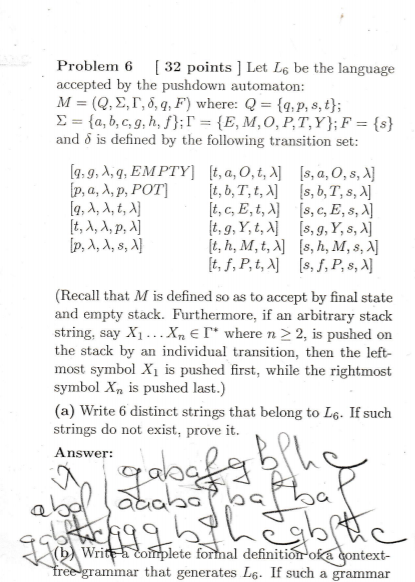 Problem 6 [ 32 points ] Let L₆ be the language
accepted by the pushdown automaton:
M = (Q, Σ, Γ, δ, q, F) where: Q = {q, p, s, t};
Σ = {a, b, c, g, h, f}; Γ = {E, M, O, P, T, Y}; F = {s}
and δ is defined by the following transition set:
[q, g, λ, q, EMPTY] [t, a, O, t, λ] [s, a, O, s, λ]
[p, a, λ, p, POT] [t, b, T, t, λ] [s, b, T, s, λ]
[q, λ, λ, t, λ] [t, c, E, t, λ] [s, c, E, s, λ]
[t, λ, λ, p, λ] [t, g, Y, t, λ] [s, g, Y, s, λ]
[p, λ, λ, s, λ] [t, h, M, t, λ] [s, h, M, s, λ]
[t, f, P, t, λ] [s, f, P, s, λ]
(Recall that M is defined so as to accept by final state
and empty stack. Furthermore, if an arbitrary stack
string, say X₁ . . . Xₙ ∈ Γ* where n ≥ 2, is pushed on
the stack by an individual transition, then the left-
most symbol X₁ is pushed first, while the rightmost
symbol Xₙ is pushed last.)
(a) Write 6 distinct strings that belong to L₆. If such
strings do not exist, prove it.
Answer:
λ gabafgbfhc
abaf aaabafbafbaf
ggbfhc gggbfhcgbfhc
(b) Write a complete formal definition of a context-
free grammar that generates L₆. If such a grammar